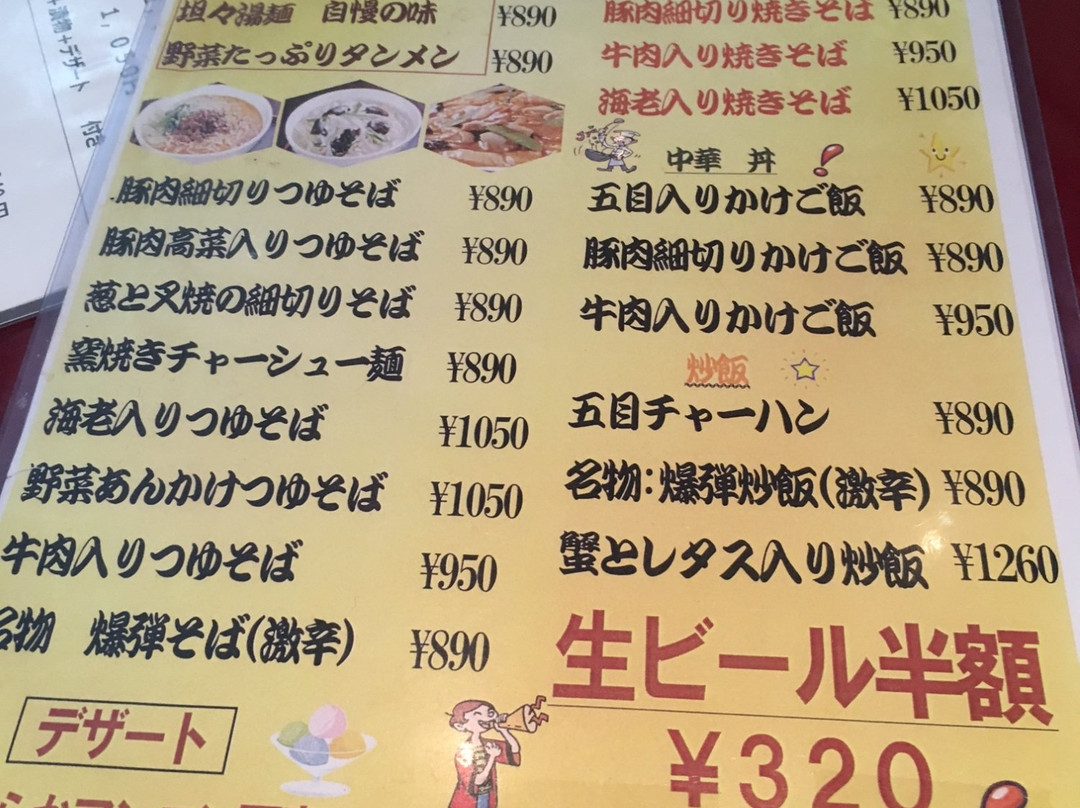 1,050円
+漬物+デザート 付
坦々湯麺 自慢の味 ¥890
野菜たっぷりタンメン ¥890
豚肉細切りつゆそば ¥890
豚肉高菜入りつゆそば ¥890
葱と叉焼の細切りそば ¥890
窯焼きチャーシュー麺 ¥890
海老入りつゆそば ¥1050
野菜あんかけつゆそば ¥1050
牛肉入りつゆそば ¥950
名物 爆弾そば(激辛) ¥890
デザート
豚肉細切り焼きそば ¥890
牛肉入り焼きそば ¥950
海老入り焼きそば ¥1050
中華 丼
五目入りかけご飯 ¥890
豚肉細切りかけご飯 ¥890
牛肉入りかけご飯 ¥950
炒飯
五目チャーハン ¥890
名物:爆弾炒飯(激辛) ¥890
蟹とレタス入り炒飯 ¥1260
生ビール半額
¥320